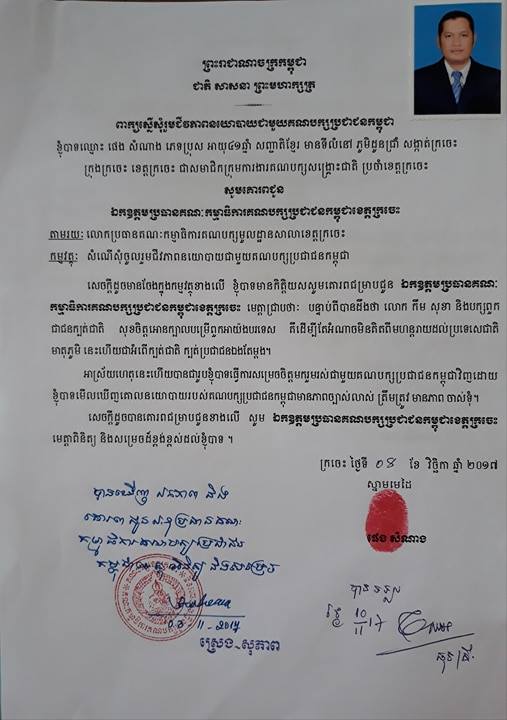 ព្រះរាជាណាចក្រកម្ពុជា
ជាតិ សាសនា ព្រះមហាក្សត្រ
ពាក្យស្នើសុំរួមជីវភាពនយោបាយជាមួយគណបក្សប្រជាជនកម្ពុជា
ខ្ញុំបាទឈ្មោះ ផេង សំណាង ភេទប្រុស អាយុ៤១ឆ្នាំ សញ្ជាតិខ្មែរ មានទីលំនៅ ភូមិដូនជ្រាំ សង្កាត់ក្រចេះ
ក្រុងក្រចេះ ខេត្តក្រចេះ ជាសមាជិកក្រុមការងារគណបក្សសង្គ្រោះជាតិ ប្រចាំខេត្តក្រចេះ
សូមគោរពជូន
ឯកឧត្តមប្រធានគណៈកម្មាធិការគណបក្សប្រជាជនកម្ពុជាខេត្តក្រចេះ
តាមរយៈ លោកប្រធានគណៈកម្មាធិការគណបក្សមូលដ្ឋានសាលាខេត្តក្រចេះ
កម្មវត្ថុៈ សំណើសុំចូលរួមជីវភាពនយោបាយជាមួយគណបក្សប្រជាជនកម្ពុជា
សេចក្តីដូចមានចែងក្នុងកម្មវត្ថុខាងលើ ខ្ញុំបាទមានកិត្តិយសសូមគោរពជម្រាបជូន ឯកឧត្តមប្រធានគណៈ
កម្មាធិការគណបក្សប្រជាជនកម្ពុជាខេត្តក្រចេះ មេត្តាជ្រាបថាៈ បន្ទាប់ពីបានដឹងថា លោក កឹម សុខា និងបក្សពួក
ជាជនក្បត់ជាតិ សុខចិត្តអោនក្បាលបម្រើពួកអាយ៉ងបរទេស ក៏ដើម្បីតែអំណាចមិនគិតពីមហន្តរាយដល់ប្រទេសជាតិ
មាតុភូមិ នេះហើយជាអំពើក្បត់ជាតិ ក្បត់ប្រជាជនឯងតែម្តង។
អាស្រ័យហេតុនេះហើយបានជារូបខ្ញុំបាទធ្វើការសម្រេចចិត្តមករួមរស់ជាមួយគណបក្សប្រជាជនកម្ពុជាវិញដោយ
ខ្ញុំបាទមើលឃើញគោលនយោបាយរបស់គណបក្សប្រជាជនកម្ពុជាមានភាពច្បាស់លាស់ ត្រឹមត្រូវ មានភាព ចាស់ទុំ។
សេចក្តីដូចបានគោរពជម្រាបជូនខាងលើ សូម ឯកឧត្តមប្រធានគណបក្សប្រជាជនកម្ពុជាខេត្តក្រចេះ
មេត្តាពិនិត្យ និងសម្រេចដ៏ខ្ពង់ខ្ពស់ដល់ខ្ញុំបាទ ។
ក្រចេះ ថ្ងៃទី 08 ខែ វិច្ឆិកា ឆ្នាំ ២០១៧
ស្នាមមេដៃ
ផេង សំណាង
បានឃើញ ឯកភាព និង
គោរពជូនប្រធានគណៈ
កម្មាធិការគណបក្សប្រជាជន
ស្រេង-សុភាព
បានទទួល
10
11